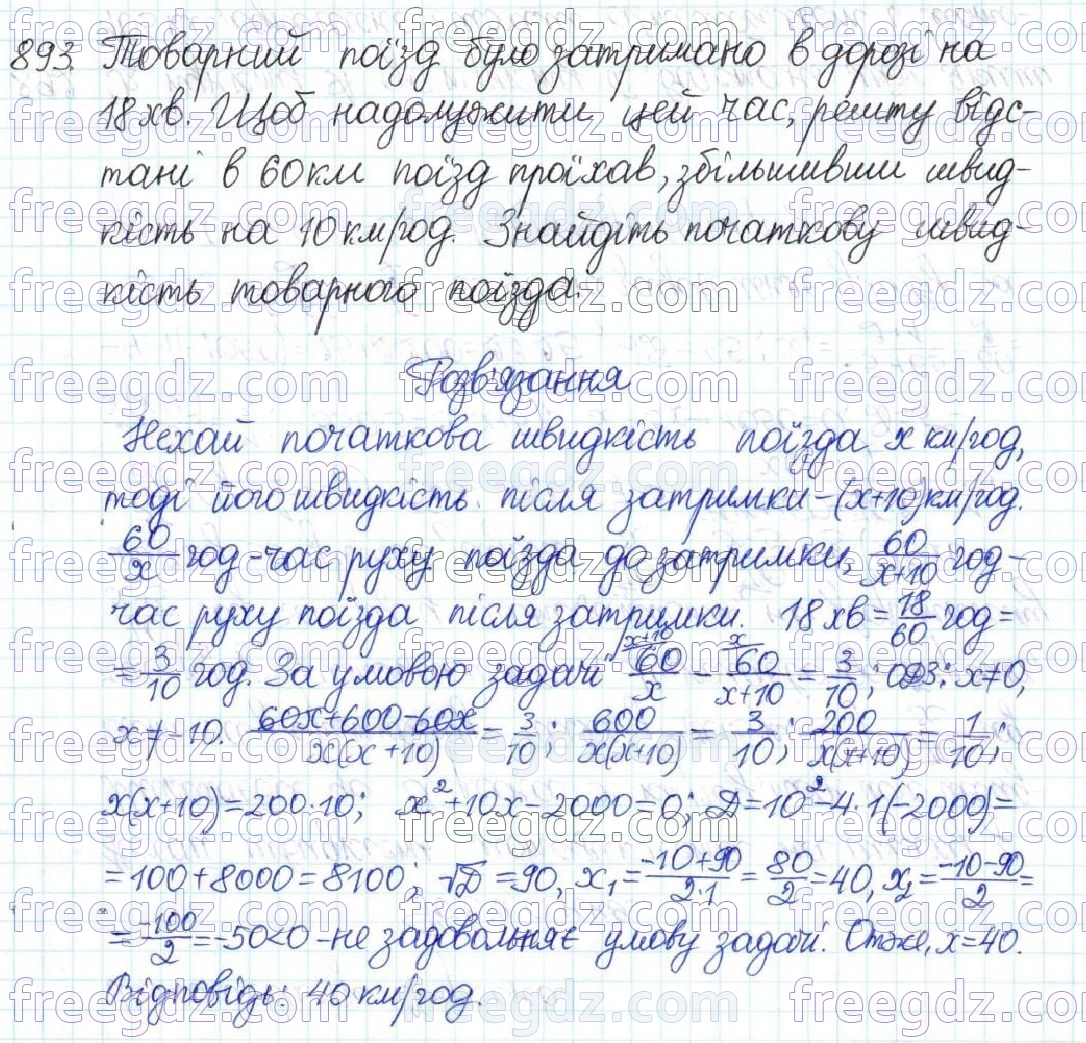 893. Товарний поїзд було затримано в дорозі на
18 хв. Щоб надолужити цей час, решту відс-
тані в 60 км поїзд проїхав, збільшивши швид-
кість на 10 км/год. Знайдіть початкову швид-
кість товарного поїзда.
Розв'язання
Нехай початкова швидкість поїзда x км/год,
тоді його швидкість після затримки – (x+10) км/год.
60/x год – час руху поїзда до затримки, 60/(x+10) год –
час руху поїзда після затримки. 18 хв = 18/60 год =
= 3/10 год. За умовою задачі (x+10) 60/x – (x) 60/(x+10) = 3/10; ОДЗ: x≠0,
x≠-10. (60x+600-60x)/(x(x+10)) = 3/10; 600/(x(x+10)) = 3/10; 200/(x(x+10)) = 1/10;
x(x+10)=200·10; x²+10x-2000=0; D=10²-4·1(-2000)=
=100+8000=8100; √D=90, x₁=(-10+90)/(2·1)=80/2=40, x₂=(-10-90)/2=
=-100/2=-50<0 – не задовольняє умову задачі. Отже, x=40.
Відповідь: 40 км/год.
freegdz.com